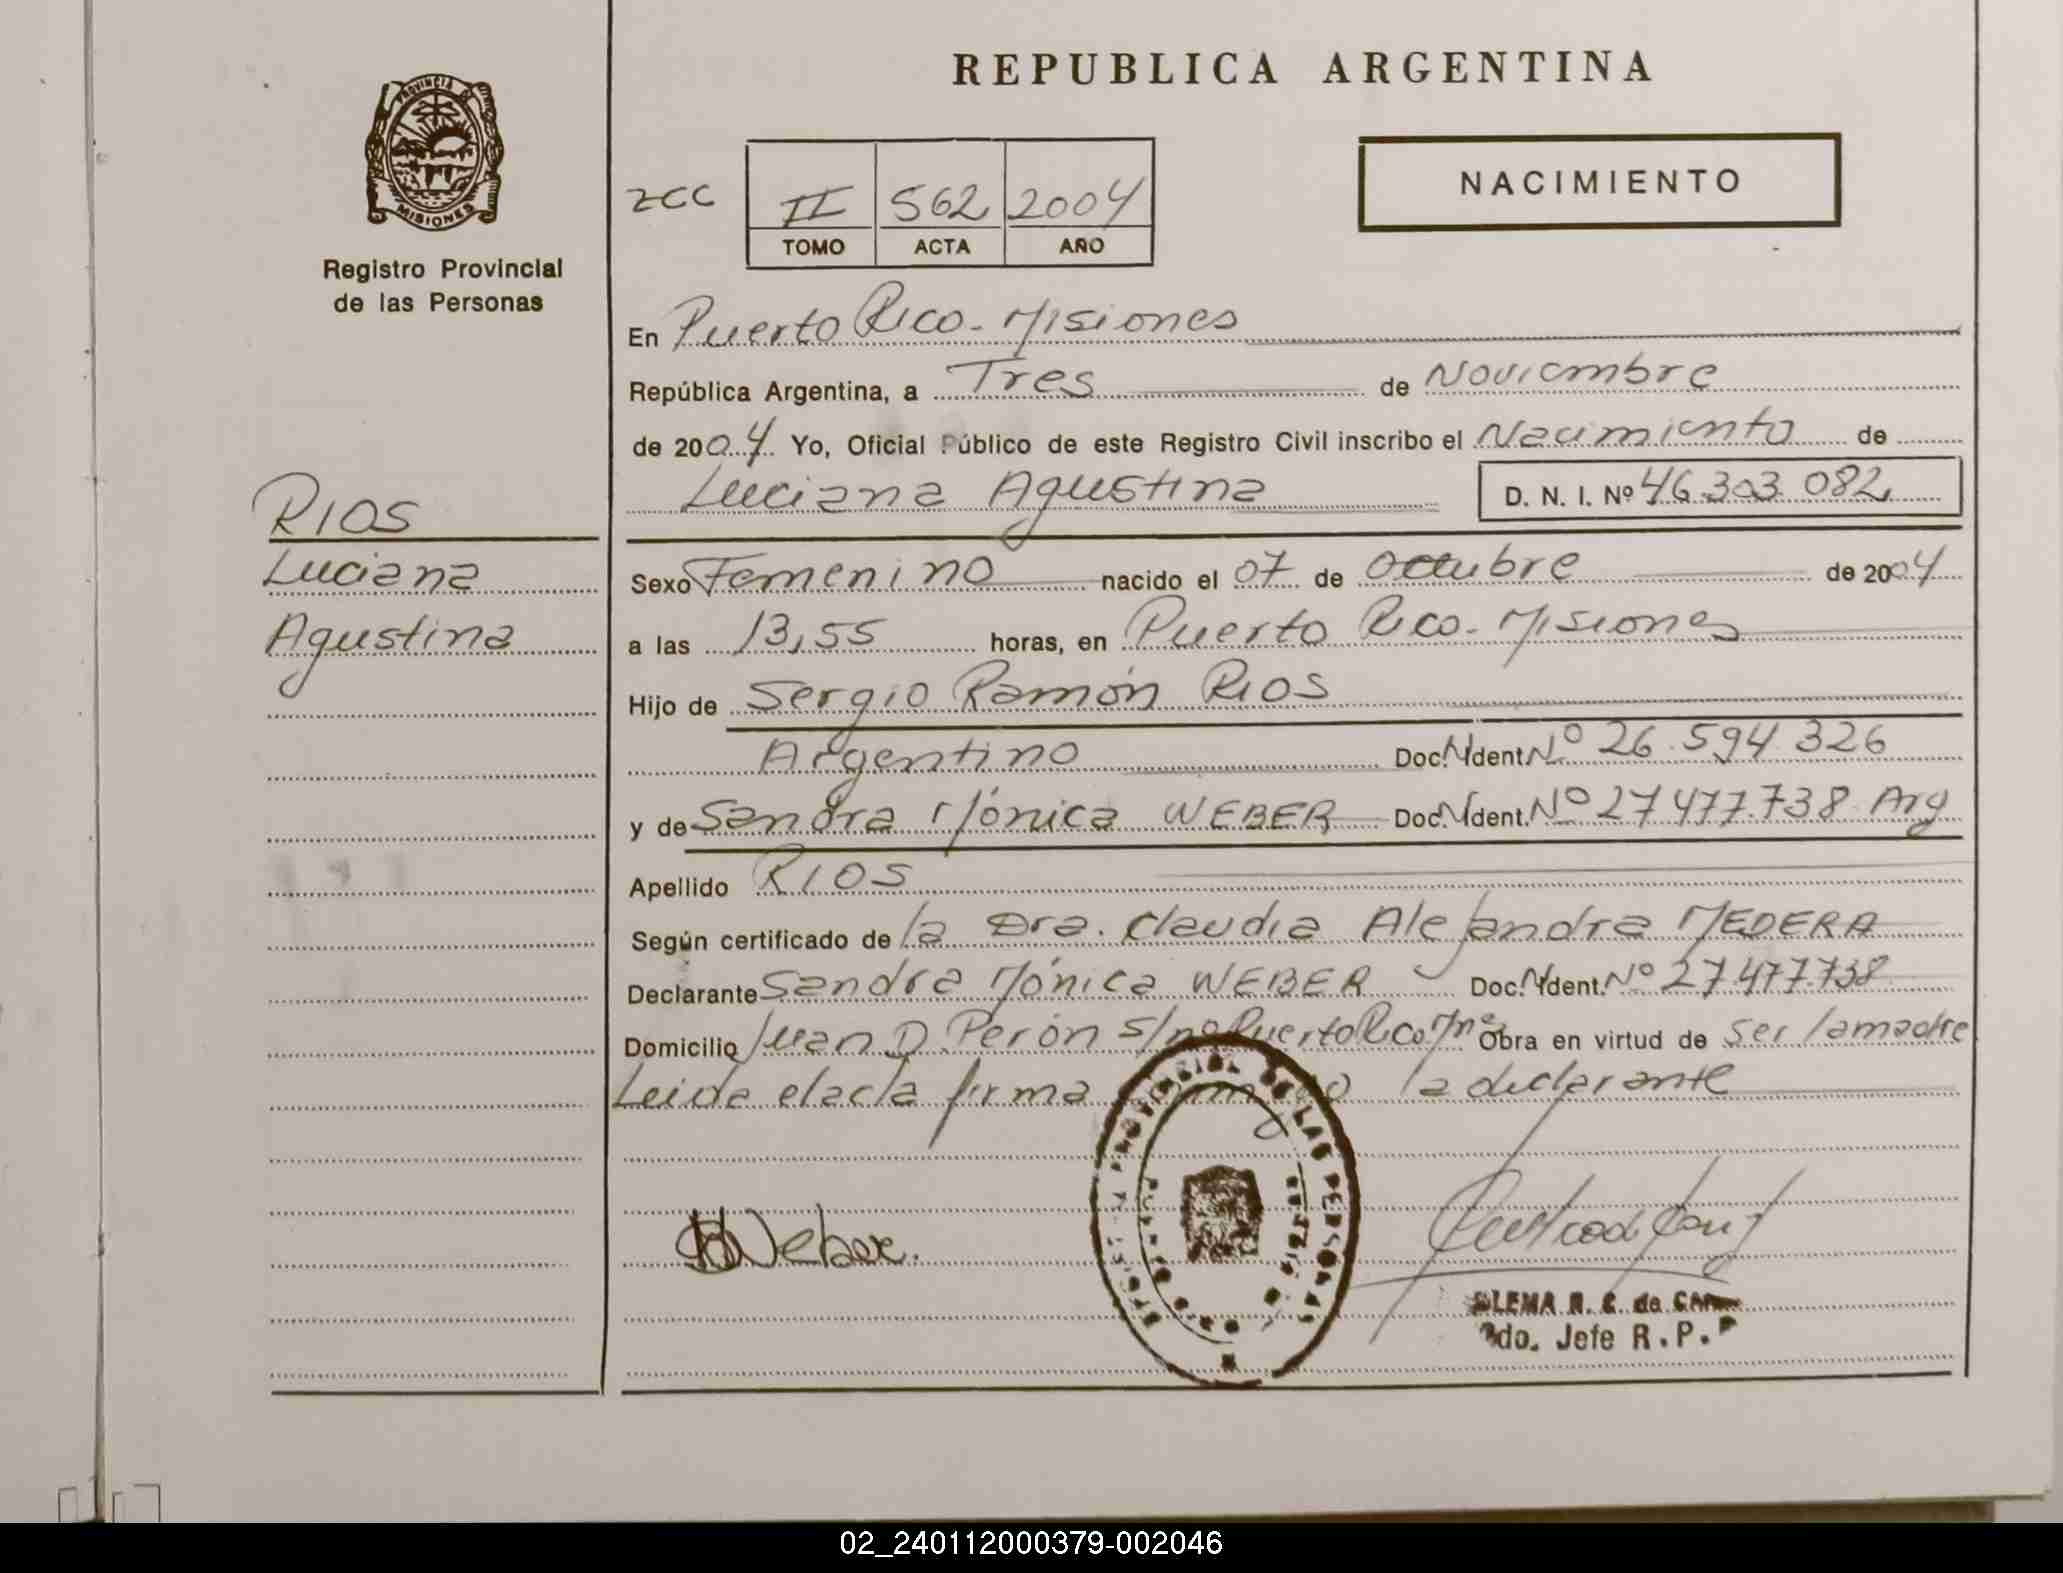 REPUBLICA ARGENTINA
PROVINCIA DE
MISIONES
Registro Provincial
de las Personas
NACIMIENTO
ZCC
II 562 2004
TOMO ACTA AÑO
En Puerto Rico - Misiones
República Argentina, a Tres de Noviembre
de 2004 Yo, Oficial Público de este Registro Civil inscribo el Nacimiento de
Luciana Agustina D. N. I. Nº 46.303.082
RIOS
Luciana
Agustina
Sexo Femenino nacido el 07 de Octubre de 2004
a las 13,55 horas, en Puerto Rico - Misiones
Hijo de Sergio Ramón RIOS
Argentino Doc. Ident. Nº 26.594.326
y de Sandra Mónica WEBER Doc. Ident. Nº 27.477.738 Arg
Apellido RIOS
Según certificado de la Dra. Claudia Alejandra MEDERA
Declarante Sandra Mónica WEBER Doc. Ident. Nº 27.477.738
Domicilio Juan D. Perón s/nº Puerto Rico Mnes Obra en virtud de ser la madre
Leida el acta firma conmigo la declarante
PROVINCIAL DE LAS PERSONAS
Weber.
R. C. de
Jefe R. P.
02_240112000379-002046